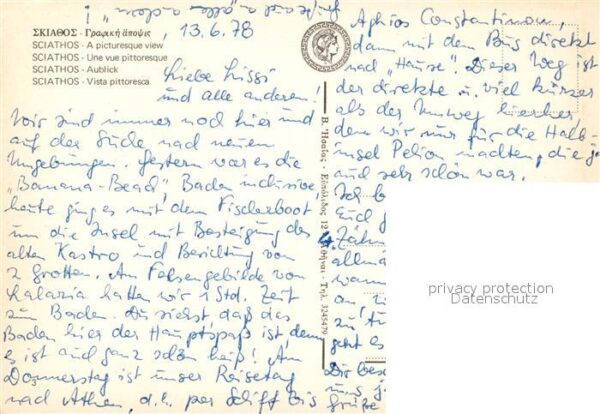 ΣΚΙΑΘΟΣ - Γραφική άποψις
SCIATHOS - A picturesque view
SCIATHOS - Une vue pittoresque
SCIATHOS - Aublick
SCIATHOS - Vista pittoresca
13.6.78
Liebe Lissi
und alle anderen!
Wir sind immer noch hier und
auf der Suche nach neuen
Umgebungen. Gestern war es die
"Banana-Beach", Baden inclusive,
heute ging es mit dem Fischerboot
um die Insel mit Besteigung des
alten Kastro und Besichtung von
2 Grotten. Am Felsengebilde von
Kalaria hatten wir 1 Std. Zeit
zum Baden. Du siehst daß das
Baden hier der Hauptspaß ist denn
es ist auch ganz schön heiß! Am
Donnerstag ist unser Reisetag
nach Athen, d.h. per Schiff bis
Aghios Constantinou,
dann mit dem Bus direkt
nach "Hause". Dieser Weg ist
der direkte u. viel kürzer
als der Umweg hierher,
den wir nur für die Halb-
insel Pelion machten, die ja
auch sehr schön war.
Ich
Euch
Zähn
allmä
wann
an.
zu
geht es
Dir bes
uns
Grüße
Β. Ήσαΐας - Ευπόλιδος 12 Αθήναι - Τηλ. 3245479
privacy protection
Datenschutz